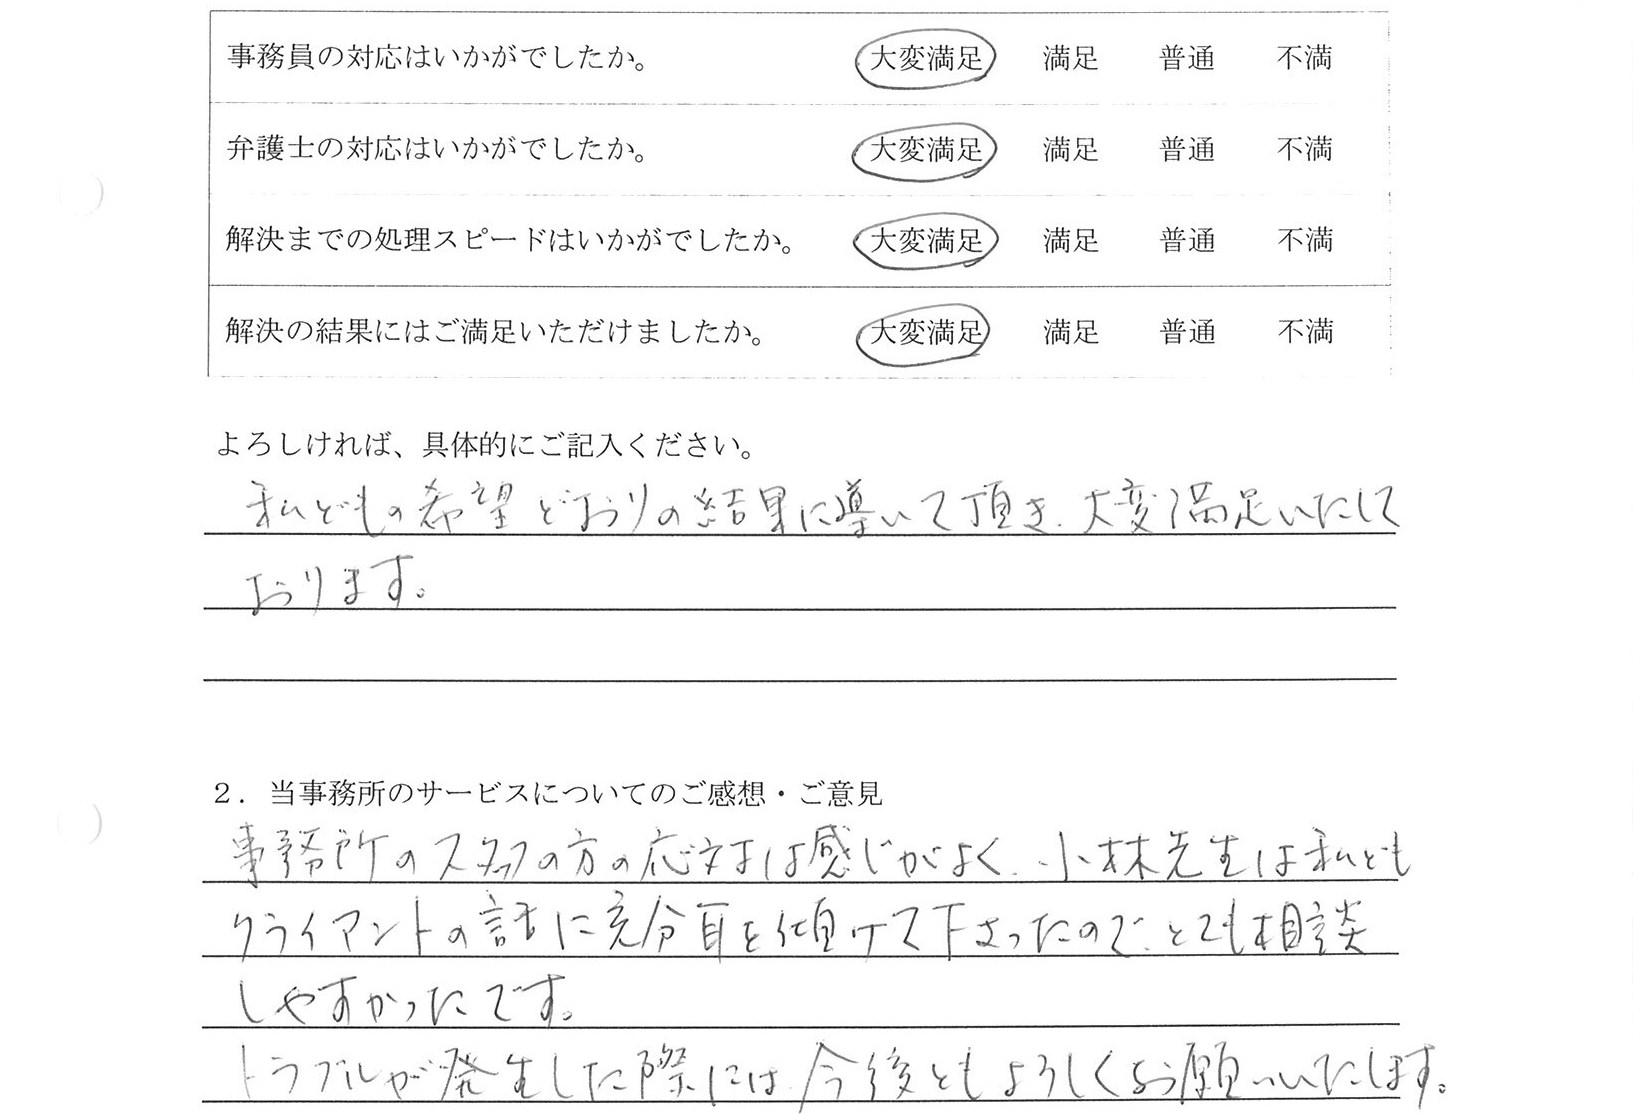 事務員の対応はいかがでしたか。 大変満足 満足 普通 不満
弁護士の対応はいかがでしたか。 大変満足 満足 普通 不満
解決までの処理スピードはいかがでしたか。 大変満足 満足 普通 不満
解決の結果にはご満足いただけましたか。 大変満足 満足 普通 不満
よろしければ、具体的にご記入ください。
私どもの希望どおりの結果に導いて頂き、大変満足いたして
おります。
２．当事務所のサービスについてのご感想・ご意見
事務所のスタッフの方の応対は感じがよく、小林先生は私ども
クライアントの話に充分耳を傾けて下さったので、とても相談
しやすかったです。
トラブルが発生した際には、今後ともよろしくお願いいたします。